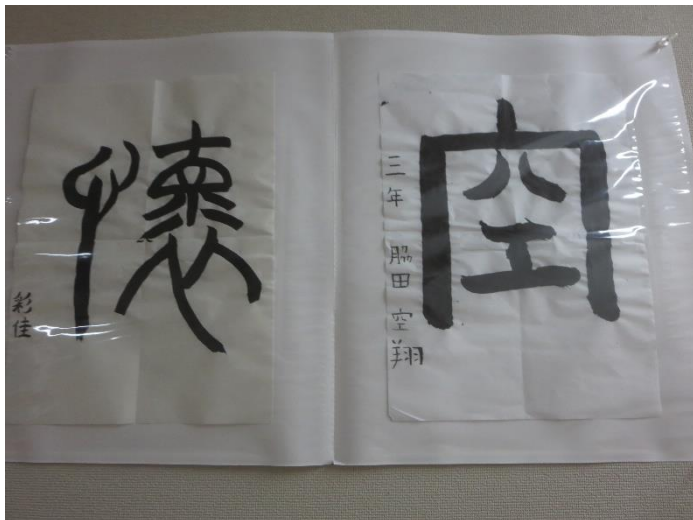 空
三年 脇田 空翔
懐
彩佳